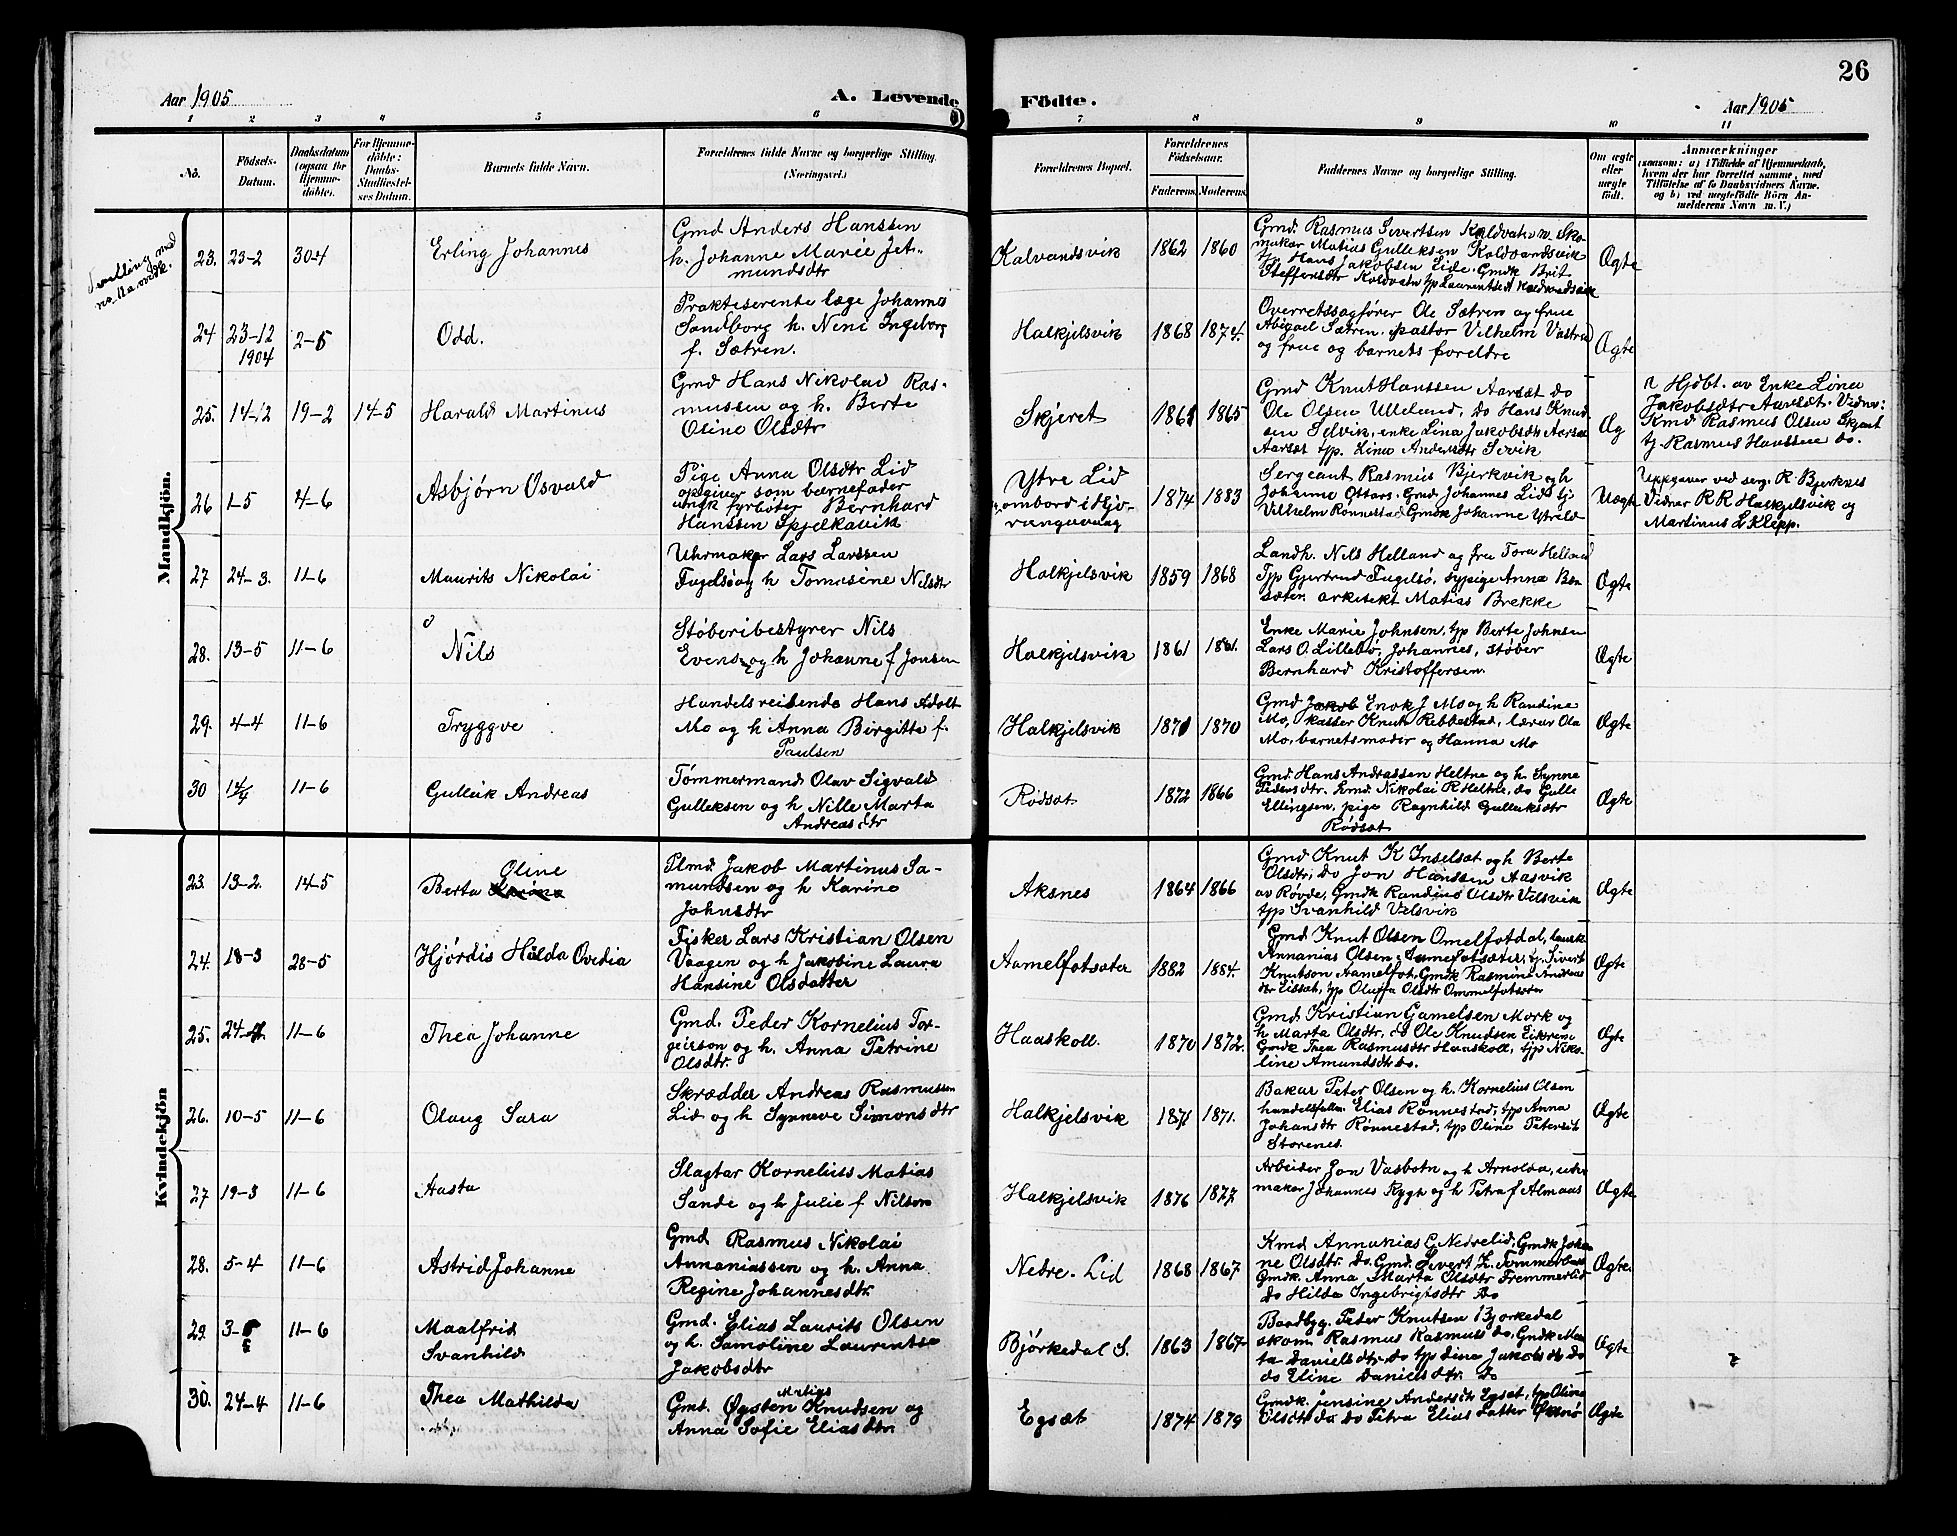 26
Aar 1905
A. Levende Födte.
Aar 1905
1 2 3 4 5 6 7 8 9 10 11
No.
Födsels-Datum.
Daabsdatum (ogsaa for Hjemme-döbte).
For Hjemme-döbte: Daabs-Stadfæstel-ses Datum.
Barnets fulde Navn.
Forældrenes fulde Navne og borgerlige Stilling. (Næringsvei.)
Forældrenes Bopæl.
Forældrenes Födselsaar.
Faderens. Moderens.
Faddernes Navne og borgerlige Stilling.
Om ægte eller uægte født.
Anmærkninger
(saasom: a) i Tilfælde af Hjemmedaab, hvem der har forrettet samme, med Tilföielse af to Daabsvidners Navne. og b) ved uægtefödte Börn Anmelderens Navn m. V.)
Mandkjön.
23. 23-2 30-4 Erling Johannes
Gmd Anders Hanssen
h. Johanne Marie Jet-
mundsdtr
Kalvandsvik 1862 1860
Gmd. Rasmus Sivertsen Koldvatn
maker Matias Gulleksen Koldvandsvik
Hans Jakobsen Lide. Gmdk Brit
Steffensdtr Koldvatn
Ægte
24 23-12 1904 2-5 Odd.
Prakteserente læge Johannes
Sandborg h. Nini Ingeborg
f. Sætren.
Halkjelsvik 1868 1874.
Overretssagfører Ole Sætren og frue
Abigael Sætren. pastor Vilhelm
og frue og barnets foreldre
Ægte
25. 14-12 19-2 14-5 Harald Martinus
Gmd Hans Nikolai Ras-
mussen og h. Berte
Oline Olsdtr
Skjeret 1865
Gmd Knut Hanssen Aarsæt do
Ole Olsen Ulleland, do Hans Knud-
sen Selvik, enke Lina Jakobsdtr Aarsæt
Aarsæt tjp. Lina Andersdtr Sevik
Æg
Hjdbt. av Enke Lina
Jakobsdtr Aarsæt. Vidner:
Kmd Rasmus Olsen Skjeret
tj. Rasmus Hanssen do.
26 1-5 4-6 Asbjørn Osvald
Pige Anna Olsdtr Lid
opgiver som barnefader
ungk fyrbøter Bernhard
Hanssen Spjelkavik
Ytre Lid
ombord i Hjø-
rungavaag
1874 1883
Sergeant Rasmus Bjerkvik og h
Johanne Ottars. Gmd Johannes Lid. tj
Vilhelm Rønnestad Gmdk Johanne Ytrelid
Uægte
Uppgaver ved serg. R Bjerknes
Vidner R R Halkjelsvik og
Martinus L Klepp.
27 24-3. 11-6 Maurits Nikolai
Uhrmaker Lars Larssen
Fugelsø og h Tomesine Nilsdtr
Halkjelsvik 1859 1868
Landh. Nils Helland og fru Tora Helland
Tjp Gjertrud Fugelsø, sypige Anna
sæter. arkitekt Matias Brekke
Ægte
28. 13-5 11-6 Nils
Støberibestyrer Nils
Evens og h Johanne f Jonsen
Halkjelsvik 1861 1861.
Enke Marie Johnsen, tjp Berte Johnsen
Lars O. Lillebø, Johannes, støber
Bernhard Kristoffersen.
Ægte
29. 4-4 11-6 Tryggve
Handelsreisende Hans Adolf
Mo og h Anna Birgitte f.
Paulsen
Halkjelsvik 1870
Gmd Enok J Mo og h Randine
Mo, kasser Knut Ribbestad, lærer Ola
Mo, barnets moder og Hanna Mo
Ægte
30 11-6 Gullik Andreas
Tømmermand Olav Sigvald
Gulleksen og h Nille Marta
Andreasdtr
Rødsæt 1872 1866
Gmd. Hans Andrassen Heltne og h. Synne
Pedersdtr. Nikolai R Heltne, do Gulle
Ellingsen, pige Ragnhild Gulleksdtr
Rødsæt
Ægte
Kvindekjön
23. 13-2. 14-5 Berta Oline
Plmd Jakob Martinus Sa-
mundsen og h Karine
Johnsdtr
Aksnes 1864 1866
Gmd Knut K Inselsæt og h Berte
Olsdtr, do Jon Hanssen Aasvik
av Røvde, Gmdk Randine Olsdtr Velsvik
tjp Svanhild Velsvik
Ægte
24. 18-3 28-5 Hjørdis Hilda Ovedia
Fisker Lars Kristian Olsen
Vaagen og h Jakobine Laura
Hansine Olsdatter
Aamelfotsæter 1882 1884.
Gmd Knut Olsen Omelfotdal,
Annanias Olsen Aamelfotsæter, tj. Sivert
Knutson Aamelfot, Gmdk Rasmine Andreas
dtr Eissæt, tjp Oluffa Olsdtr Ommelfotsæter
Ægte
25. 11-6 Thea Johanne
Gmd. Peder Kornelius Tor-
geirson og h. Anna Petrine
Olsdtr.
Haaskoll. 1870 1872.
Gmd Kristian Gamelsen Mork og
h Marta Olsdtr. do Ole Knudsen
Gmdk Thea Rasmusdtr Haaskoll, tjp Niko-
line Amundsdtr do.
Ægte
26. 10-5 11-6 Olaug Sara
Skrædder Andreas Rasmussen
Lid og h Synneve Simonsdtr
Halkjelsvik 1871 1871.
Baker Peter Olsen og h. Kornelius Olsen
handelsfullm Elias Rønnestad, tjp Anna
Johansdtr Rønnestad, tjp Oline Petersdtr
Storenes.
Ægte
27 19-3 11-6 Aasta
Slagtar Kornelius Matias
Sande og h Julie f Nilson
Halkjelsvik 1876 1877
Arbeider Jon Vasbotn og h Arnolda, uhr
maker Johannes Rygt og h Petra f Almaas
Ægte
28. 5-4 11-6 Astrid Johanne
Gmd Rasmus Nikolai
Annaniassen og h. Anna
Regine Johannesdtr.
Nedre. Lid 1868 1867
Kmd Annanias G Nedrelid, Gmdk Johan
ne Olsdtr do. Gmd. Sivert
Gmdk. Anna Marta Olsdtr Fremmerlid
do Hilda Ingebrigtsdtr do
Ægte.
29. 11-6 Maalfrid
Svanhild
Gmd. Elias Laurits Olsen
og h. Samoline Laurentse
Jakobsdtr
Bjørkedal S. 1863 1867
Baadbyg. Peder Knutsen Bjorkedal
økom Rasmus Rasmus do, Gmdk Mar
ta Danielsdtr do tjp Lina Jakobsdtr do
do Eline Danielsdtr do
Ægte
30. 24-4 11-6 Thea Mathilda
Gmd. Øysten Matias Knudsen og
Anna Sofie Eliasdtr.
Egsæt 1874 1879
Gmdk. Jensine Andersdtr Egsæt, tjp Oline
Olsdtr do do Petra Elias datter
Ægte